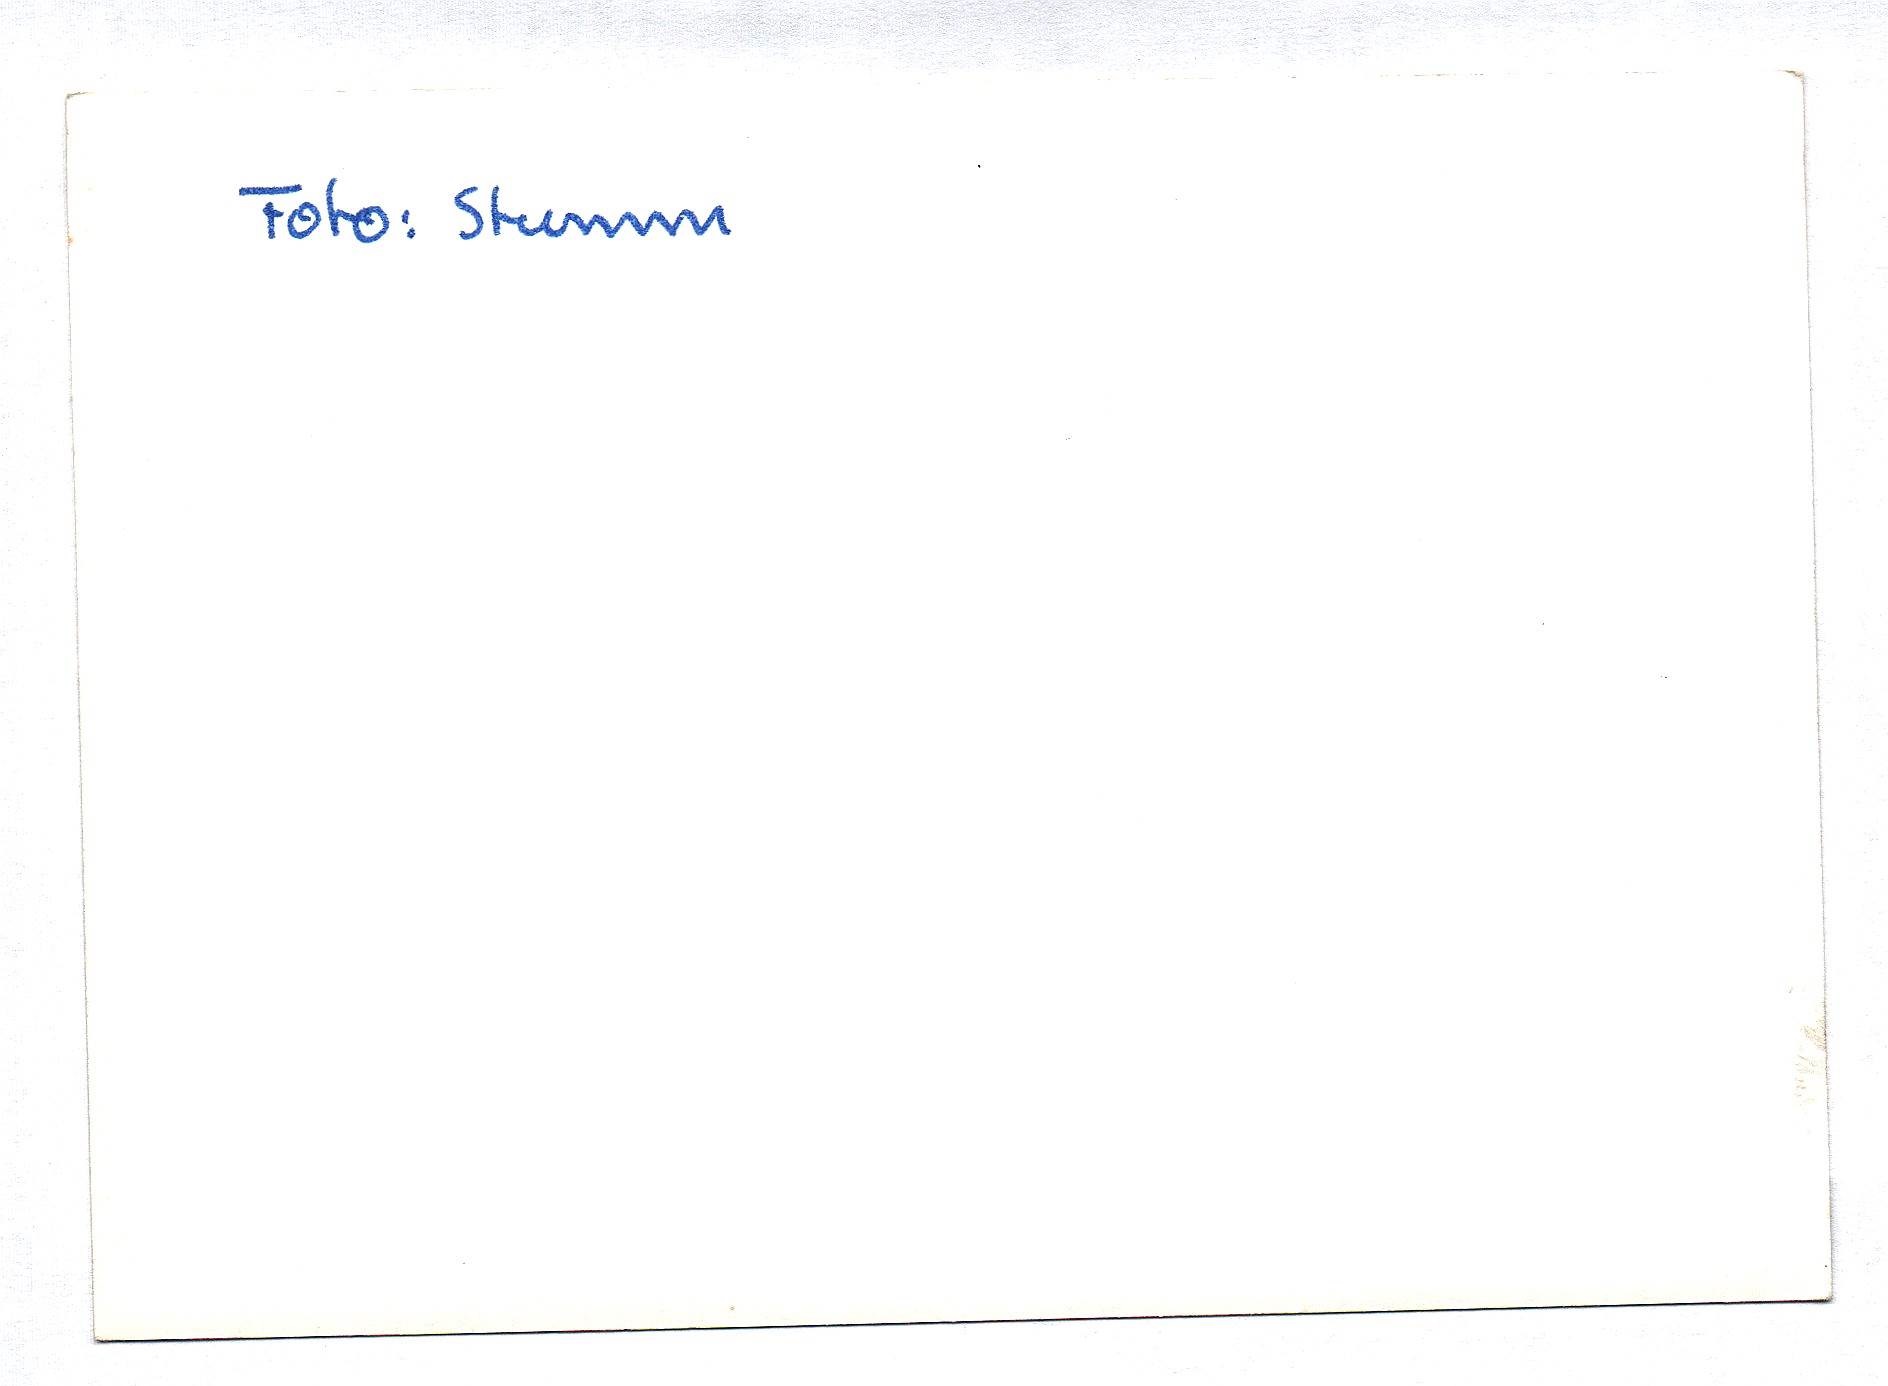 Foto: Stumm